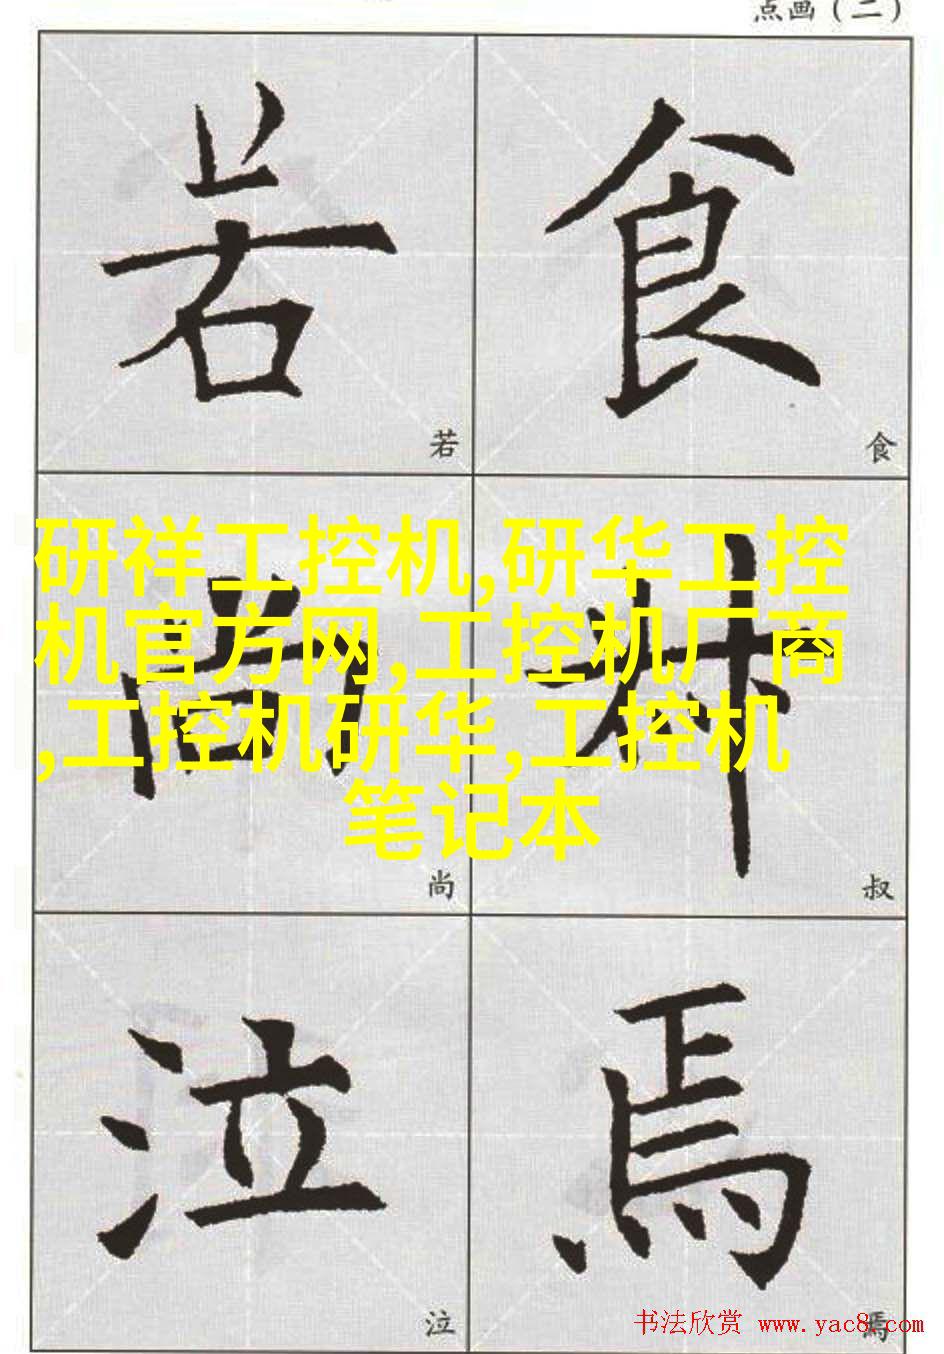 点画（二）
若 食
若 食
研祥工控机,研华工控
机官方网,工控机厂商
,工控机研华,工控机
笔记本
尚 叔
尚 叔
泣 焉
泣 焉
书法欣赏 www.yac8.com